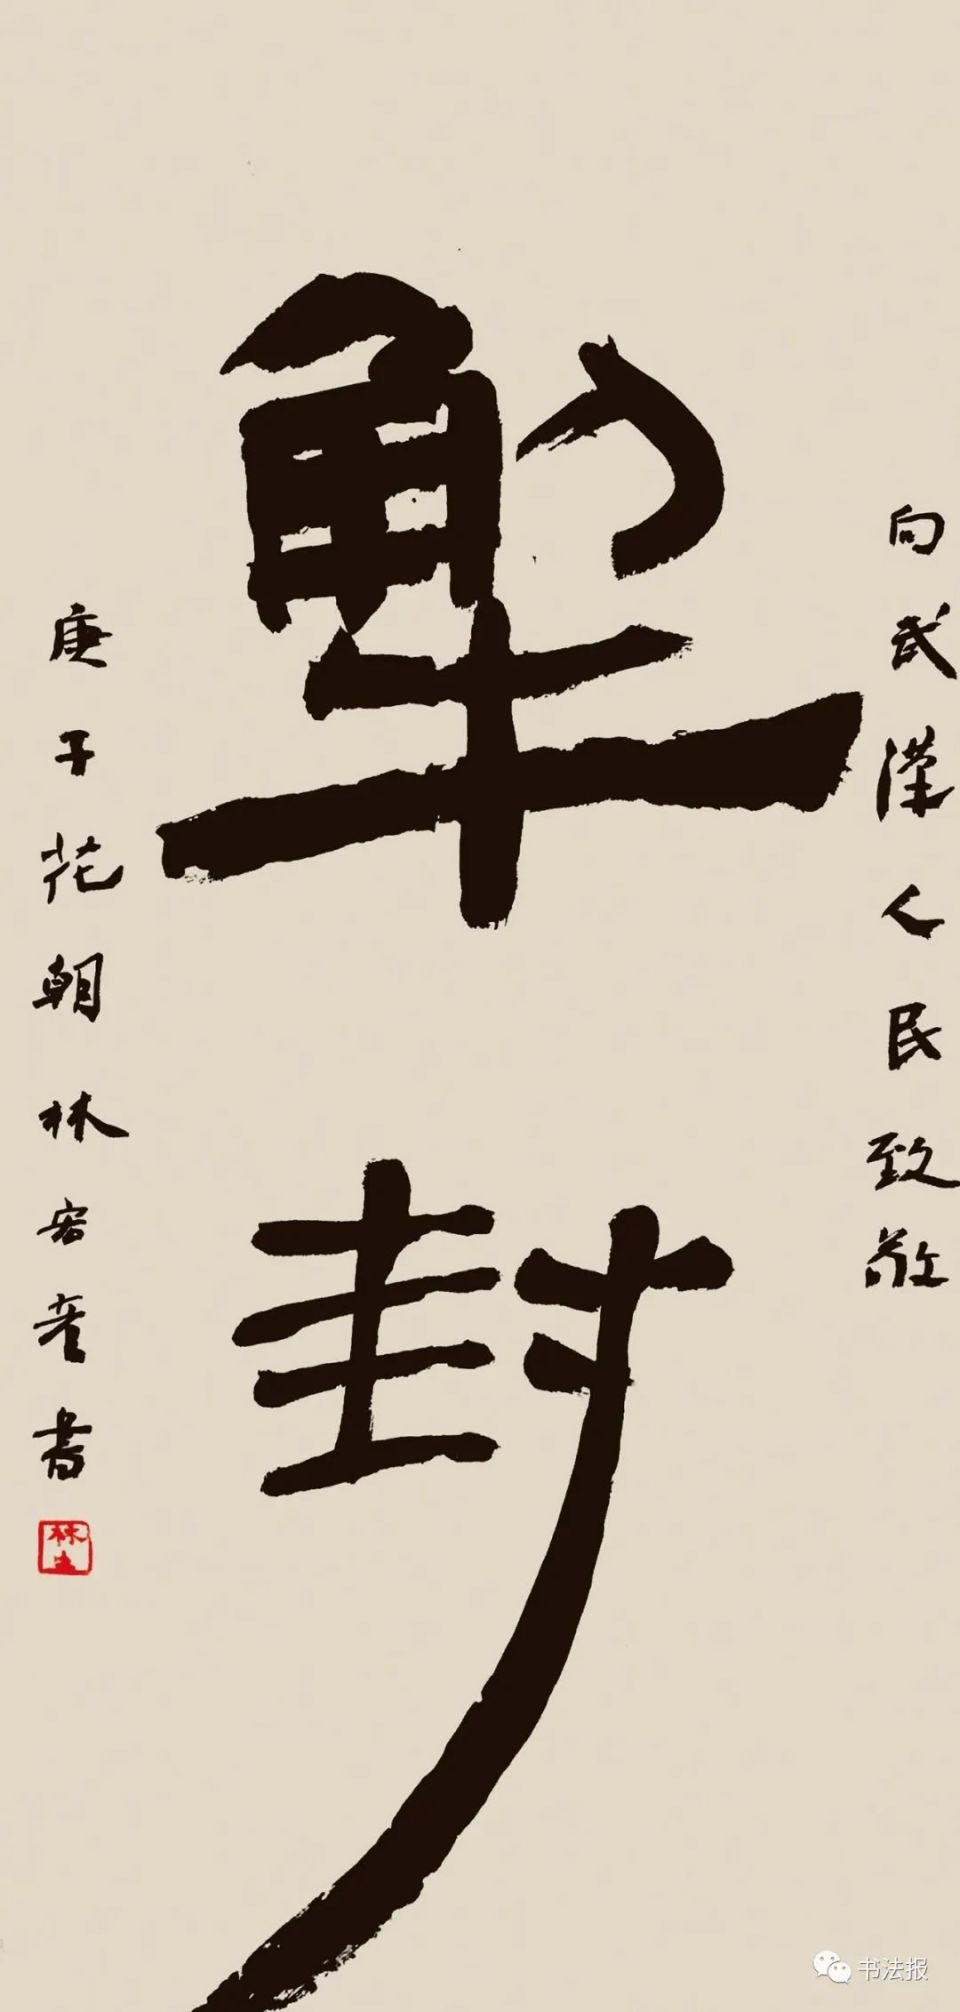 向武漢人民致敬
解封
庚子花朝林書
林
书法报